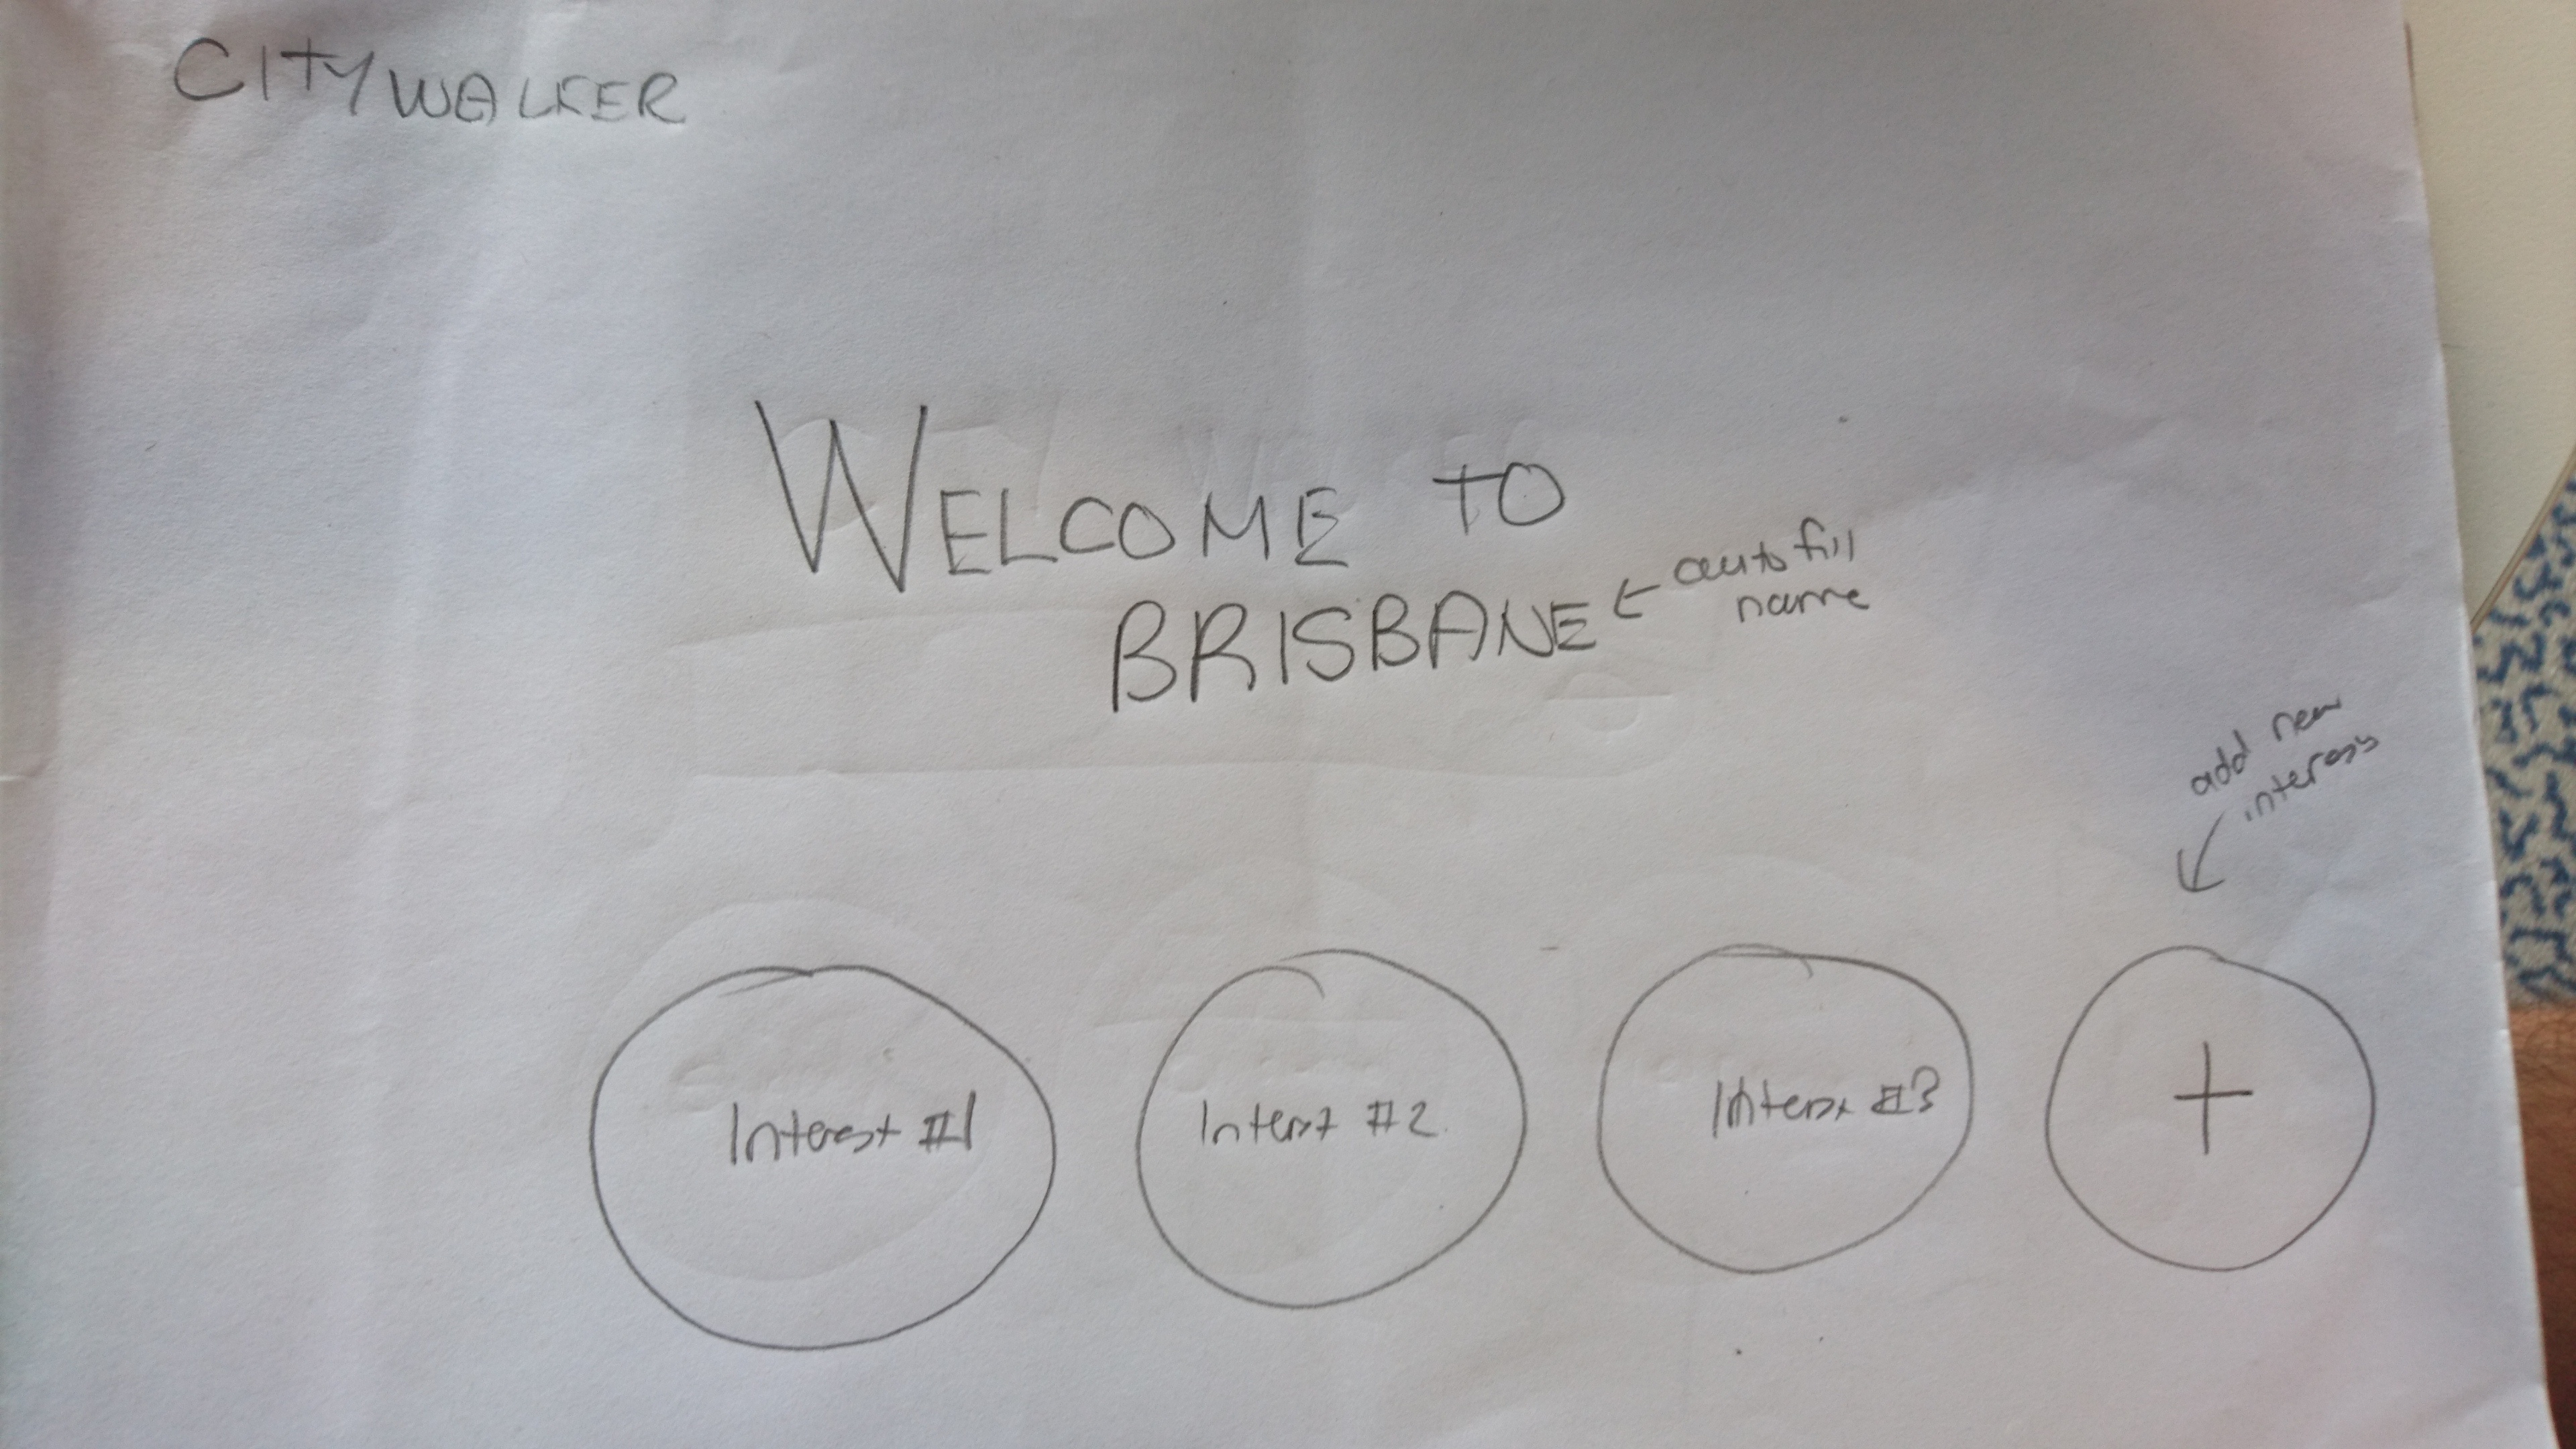 CITY WALKER
WELCOME TO
BRISBANE
← auto fill
name
add new
interests
Interest #1
Interest #2
Interest #3
+